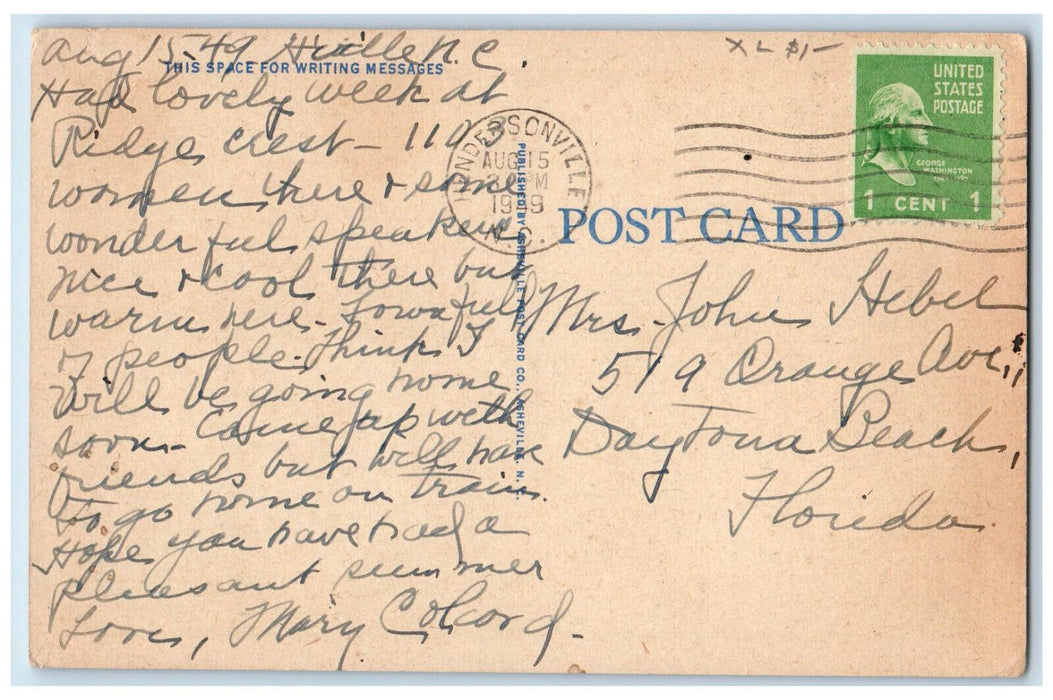 Aug 15-49 H'ville N.C.
THIS SPACE FOR WRITING MESSAGES
Had lovely week at
Ridge crest - 110
women there & some
wonderful speakers
nice & cool there but
warm here - Town full
of people. Think I
will be going home
soon - Came up with
friends but will have
to go home on train.
Hope you have had a
pleasant summer
Love, Mary Colcord -
PUBLISHED BY ASHEVILLE POST CARD CO., ASHEVILLE, N. C.
X L $1-
HENDERSONVILLE
AUG 15
PM
1949
N.C.
UNITED
STATES
POSTAGE
GEORGE
WASHINGTON
1 CENT 1
POST CARD
Mrs. John Hebel
519 Orange Ave.,
Daytona Beach,
Florida